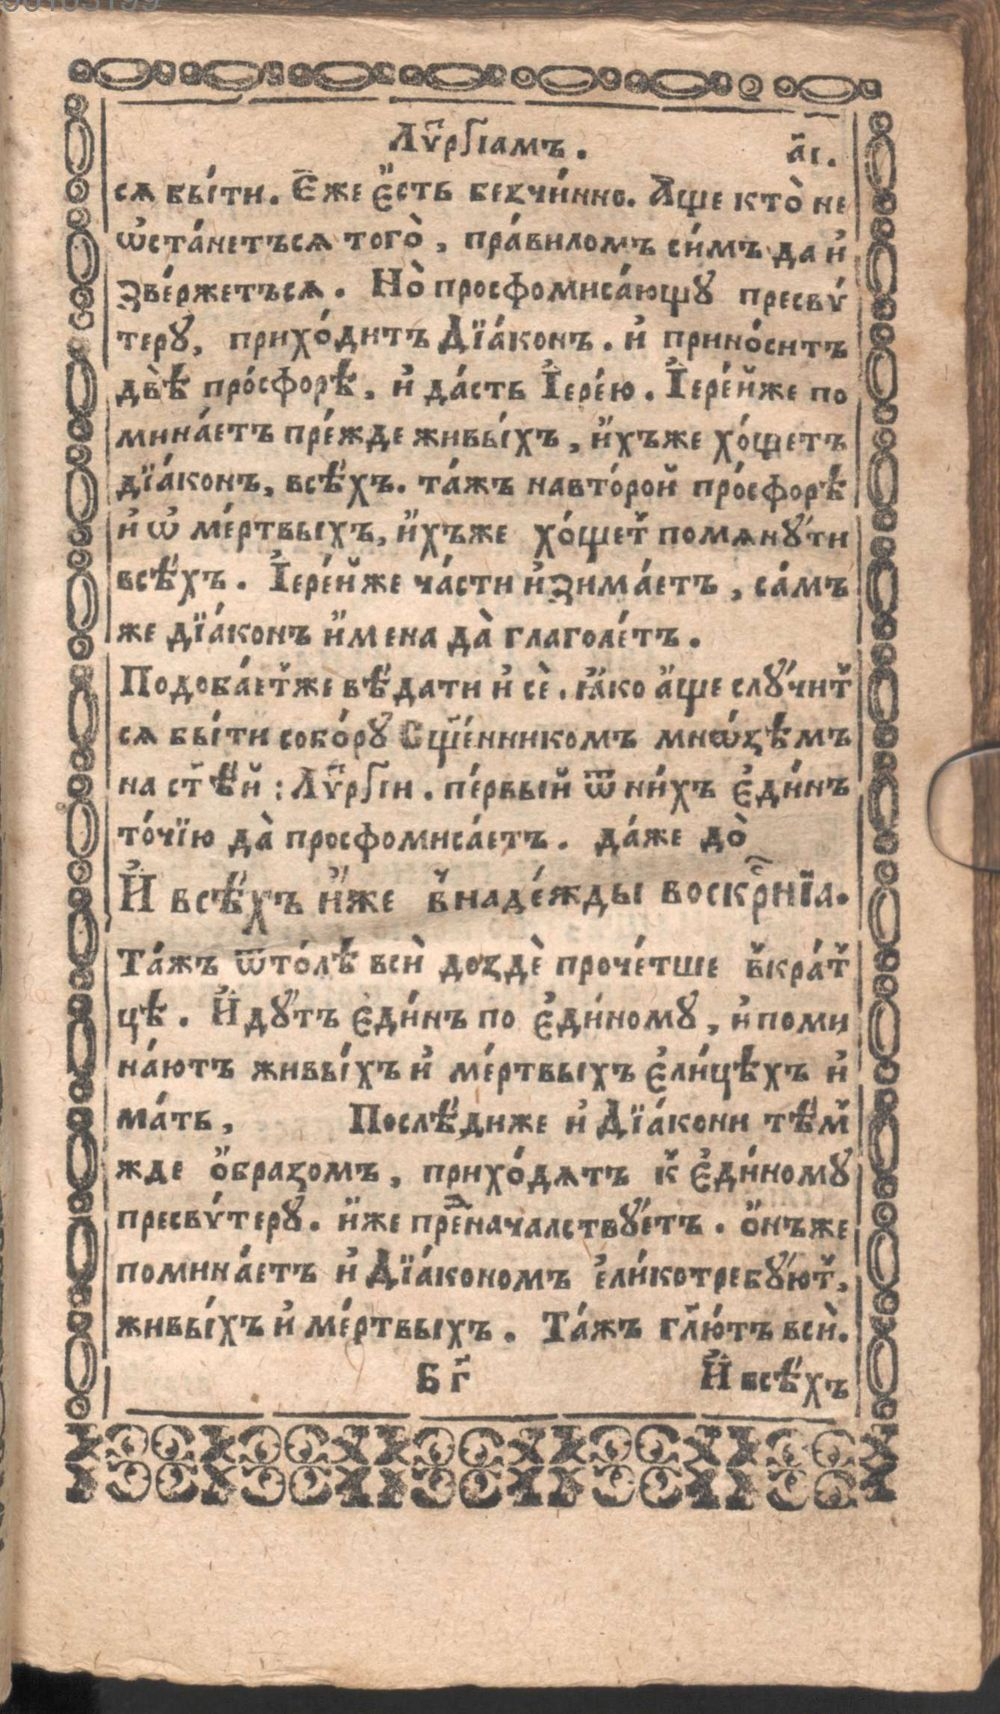 Лѵⷬ҇гїамъ. а҃і.
сѧ бы́ти. Е҆́же є҆́сть беꙁчи́нно. А҆́ще кто̀ не
ѡ҆ста́нетъсѧ того̀, пра́виломъ си́мъ да и҆
зве́ржетъсѧ. Но̀ просфомиса́ющꙋ пресвѵ́
терꙋ, прихо́дитъ Дїа́конъ. и҆ прино́ситъ
двѣ̀ про́сфорѣ, и҆ да́сть І҆ере́ю. І҆ере́йже по
мина́етъ пре́жде живы́хъ, и҆́хъже хо́щетъ
дїа́конъ, всѣ́хъ. та́жъ навто́рой про́сфорѣ
и҆ ѡ҆ ме́ртвыхъ, и҆́хъже хо́щеⷮ помѧнꙋ́ти
всѣ́хъ. І҆ере́йже ча́сти и҆зима́етъ, са́мъ
же дїа́конъ и҆́мена да̀ глаголе́тъ.
Подоба́еⷮже вѣ́дати и҆ сѐ. ꙗ҆́ко а҆́ще слꙋ́читⷭ
сѧ бы́ти собо́рꙋ Сщ҃е́нникомъ мнѡ́ꙁѣмъ
на ст҃ѣ́й: Лѵⷬ҇гїи. пе́рвый ѿ ни́хъ є҆ди́нъ
то́чїю да̀ просфомиса́етъ. да́же до̀
И҆ всѣ́хъ и҆́же в̾наде́жды воскрⷭ҇нїѧ.
Та́жъ ѿто́лѣ всѝ доꙁдѐ проче́тше в̾кра́т
цѣ. И҆дꙋ́тъ є҆ди́нъ по є҆ди́номꙋ, и҆ поми
на́ютъ живы́хъ и҆ ме́ртвыхъ є҆ли́цѣхъ и҆
ма́ть, Послѣ́диже и҆ Дїа́кони тѣ́мⷤ
жде ѻ҆́браꙁомъ, прихо́дѧтъ к̾ є҆ди́номꙋ
пресвѵ́терꙋ. и҆́же преⷣначалствꙋ́етъ. ѻ҆́нъже
помина́етъ и҆ Дїа́кономъ є҆ли́котребꙋ́юⷮ,
живы́хъ и҆ ме́ртвыхъ. Та́жъ гл҃ю́тъ всѝ.
Б г҃ И҆ всѣ́хъ